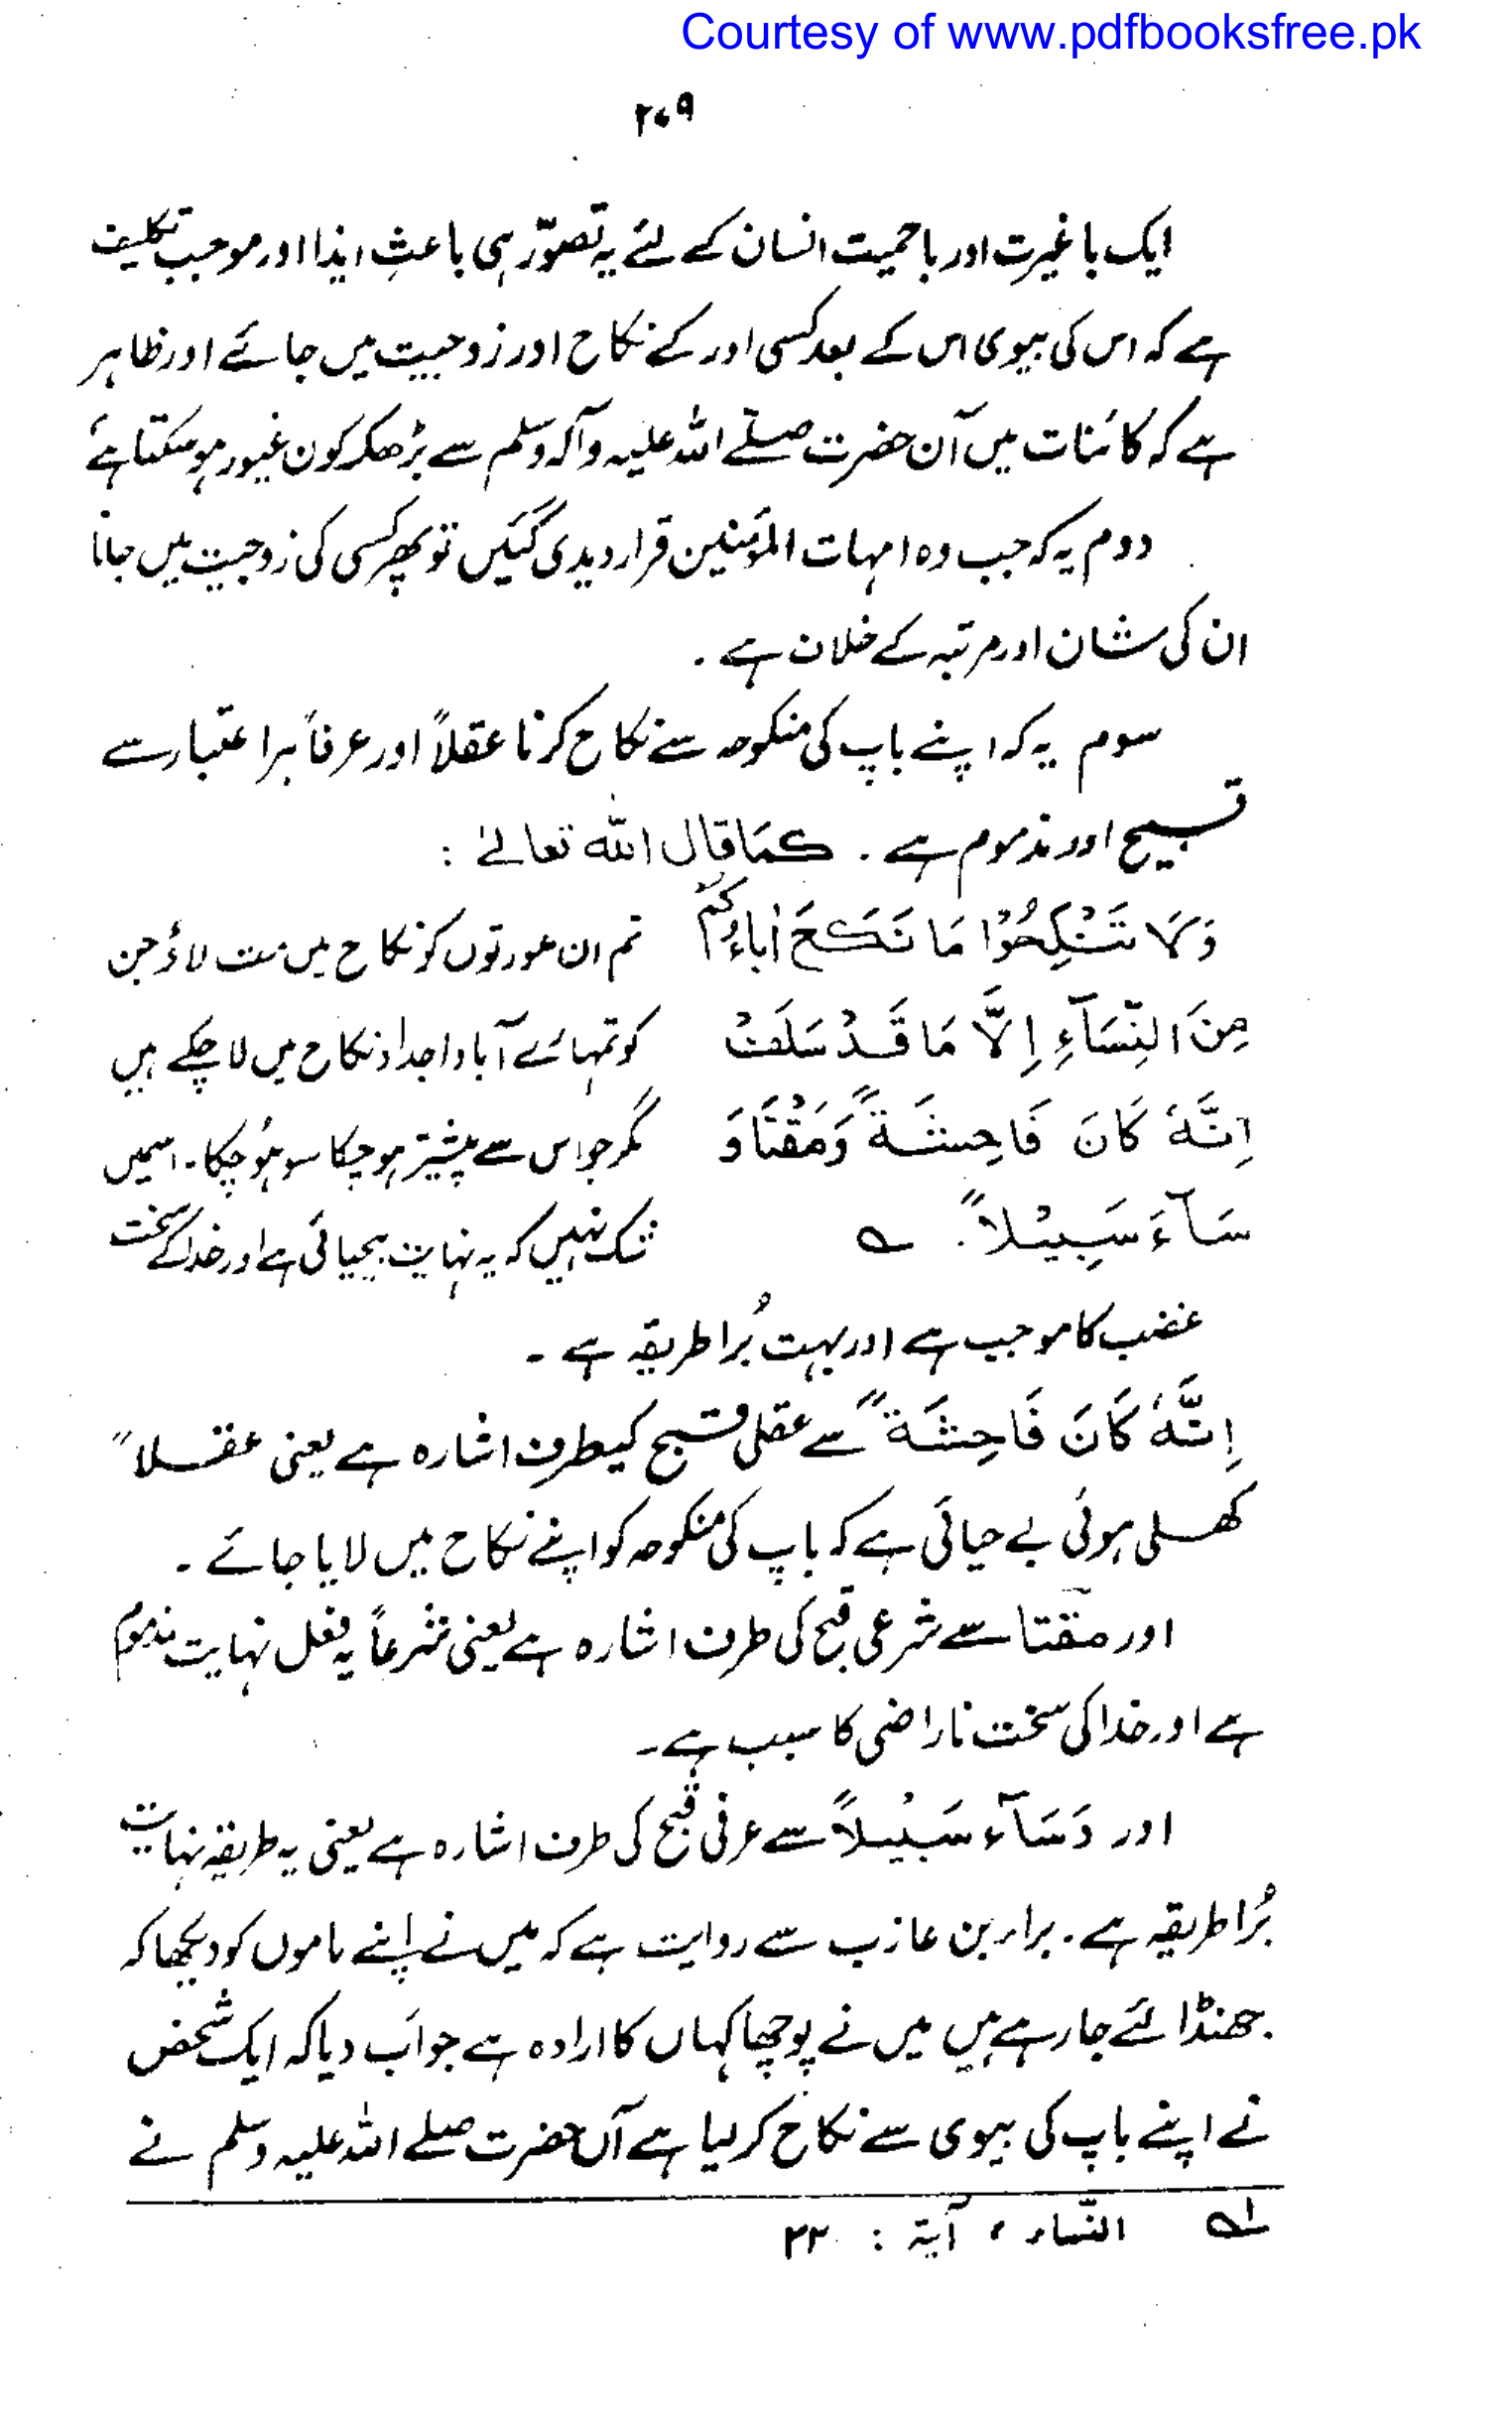 Courtesy of www.pdfbooksfree.pk
۲۰۹
ایک باغیرت اور باحمیت انسان کے لئے یہ تصوّر ہی باعثِ ایذا اور موجب تکلیف
ہے کہ اس کی بیوی اس کے بعد کسی اور کے نکاح اور زوجیت میں جائے اور ظاہر
ہے کہ کائنات میں آن حضرت صلے اللہ علیہ وآلہ وسلم سے بڑھکر کون غیور ہو سکتا ہے
دوم یہ کہ جب وہ امہات المؤمنین قرار دیدی گئیں تو پھر کسی کی زوجیت میں جانا
ان کی شان اور مرتبہ کے خلاف ہے .
سوم یہ کہ اپنے باپ کی منکوحہ سے نکاح کرنا عقلاً اور عرفاً ہر اعتبار سے
قبیح اور مذموم ہے . کمَا قال اللہ تعالےٰ :
وَلَا تَنْکِحُوْا مَا نَکَحَ اٰبَاءُکُمْ تم ان عورتوں کو نکاح میں مت لاؤ جن
مِنَ النِّسَآءِ اِلَّا مَا قَدْ سَلَفَ کو تمہارے آبا و اجداد نکاح میں لا چکے ہیں
اِنَّہٗ کَانَ فَاحِشَةً وَمَقْتًا وَ مگر جو اس سے پیشتر ہو چکا سو ہُو چکا۔ اسمیں
سَآءَ سَبِیْلاً. لہ شک نہیں کہ یہ نہایت بیحیائی ہے اور خدا کے سخت
غضب کا موجب ہے اور بہت بُرا طریقہ ہے ۔
اِنَّہٗ کَانَ فَاحِشَةً سے عقلی قبح کیطرف اشارہ ہے یعنی عقلاً
کھلی ہوئی بے حیائی ہے کہ باپ کی منکوحہ کو اپنے نکاح میں لایا جائے ۔
اور مقتا سے شرعی قبح کی طرف اشارہ ہے یعنی شرعاً یہ فعل نہایت مذموم
ہے اور خدا کی سخت ناراضی کا سبب ہے۔
اور وَسَآءَ سَبِیْلاً سے عرفی قبح کی طرف اشارہ ہے یعنی یہ طریقہ نہایت
بُرا طریقہ ہے . براء بن عازب سے روایت ہے کہ میں نے اپنے ماموں کو دیکھا کہ
جھنڈا لئے جا رہے ہیں میں نے پوچھا کہاں کا ارادہ ہے جواب دیا کہ ایک شخص
نے اپنے باپ کی بیوی سے نکاح کر لیا ہے آں حضرت صلے اللہ علیہ وسلم نے
لہ النّساء ، آیۃ : ۲۲